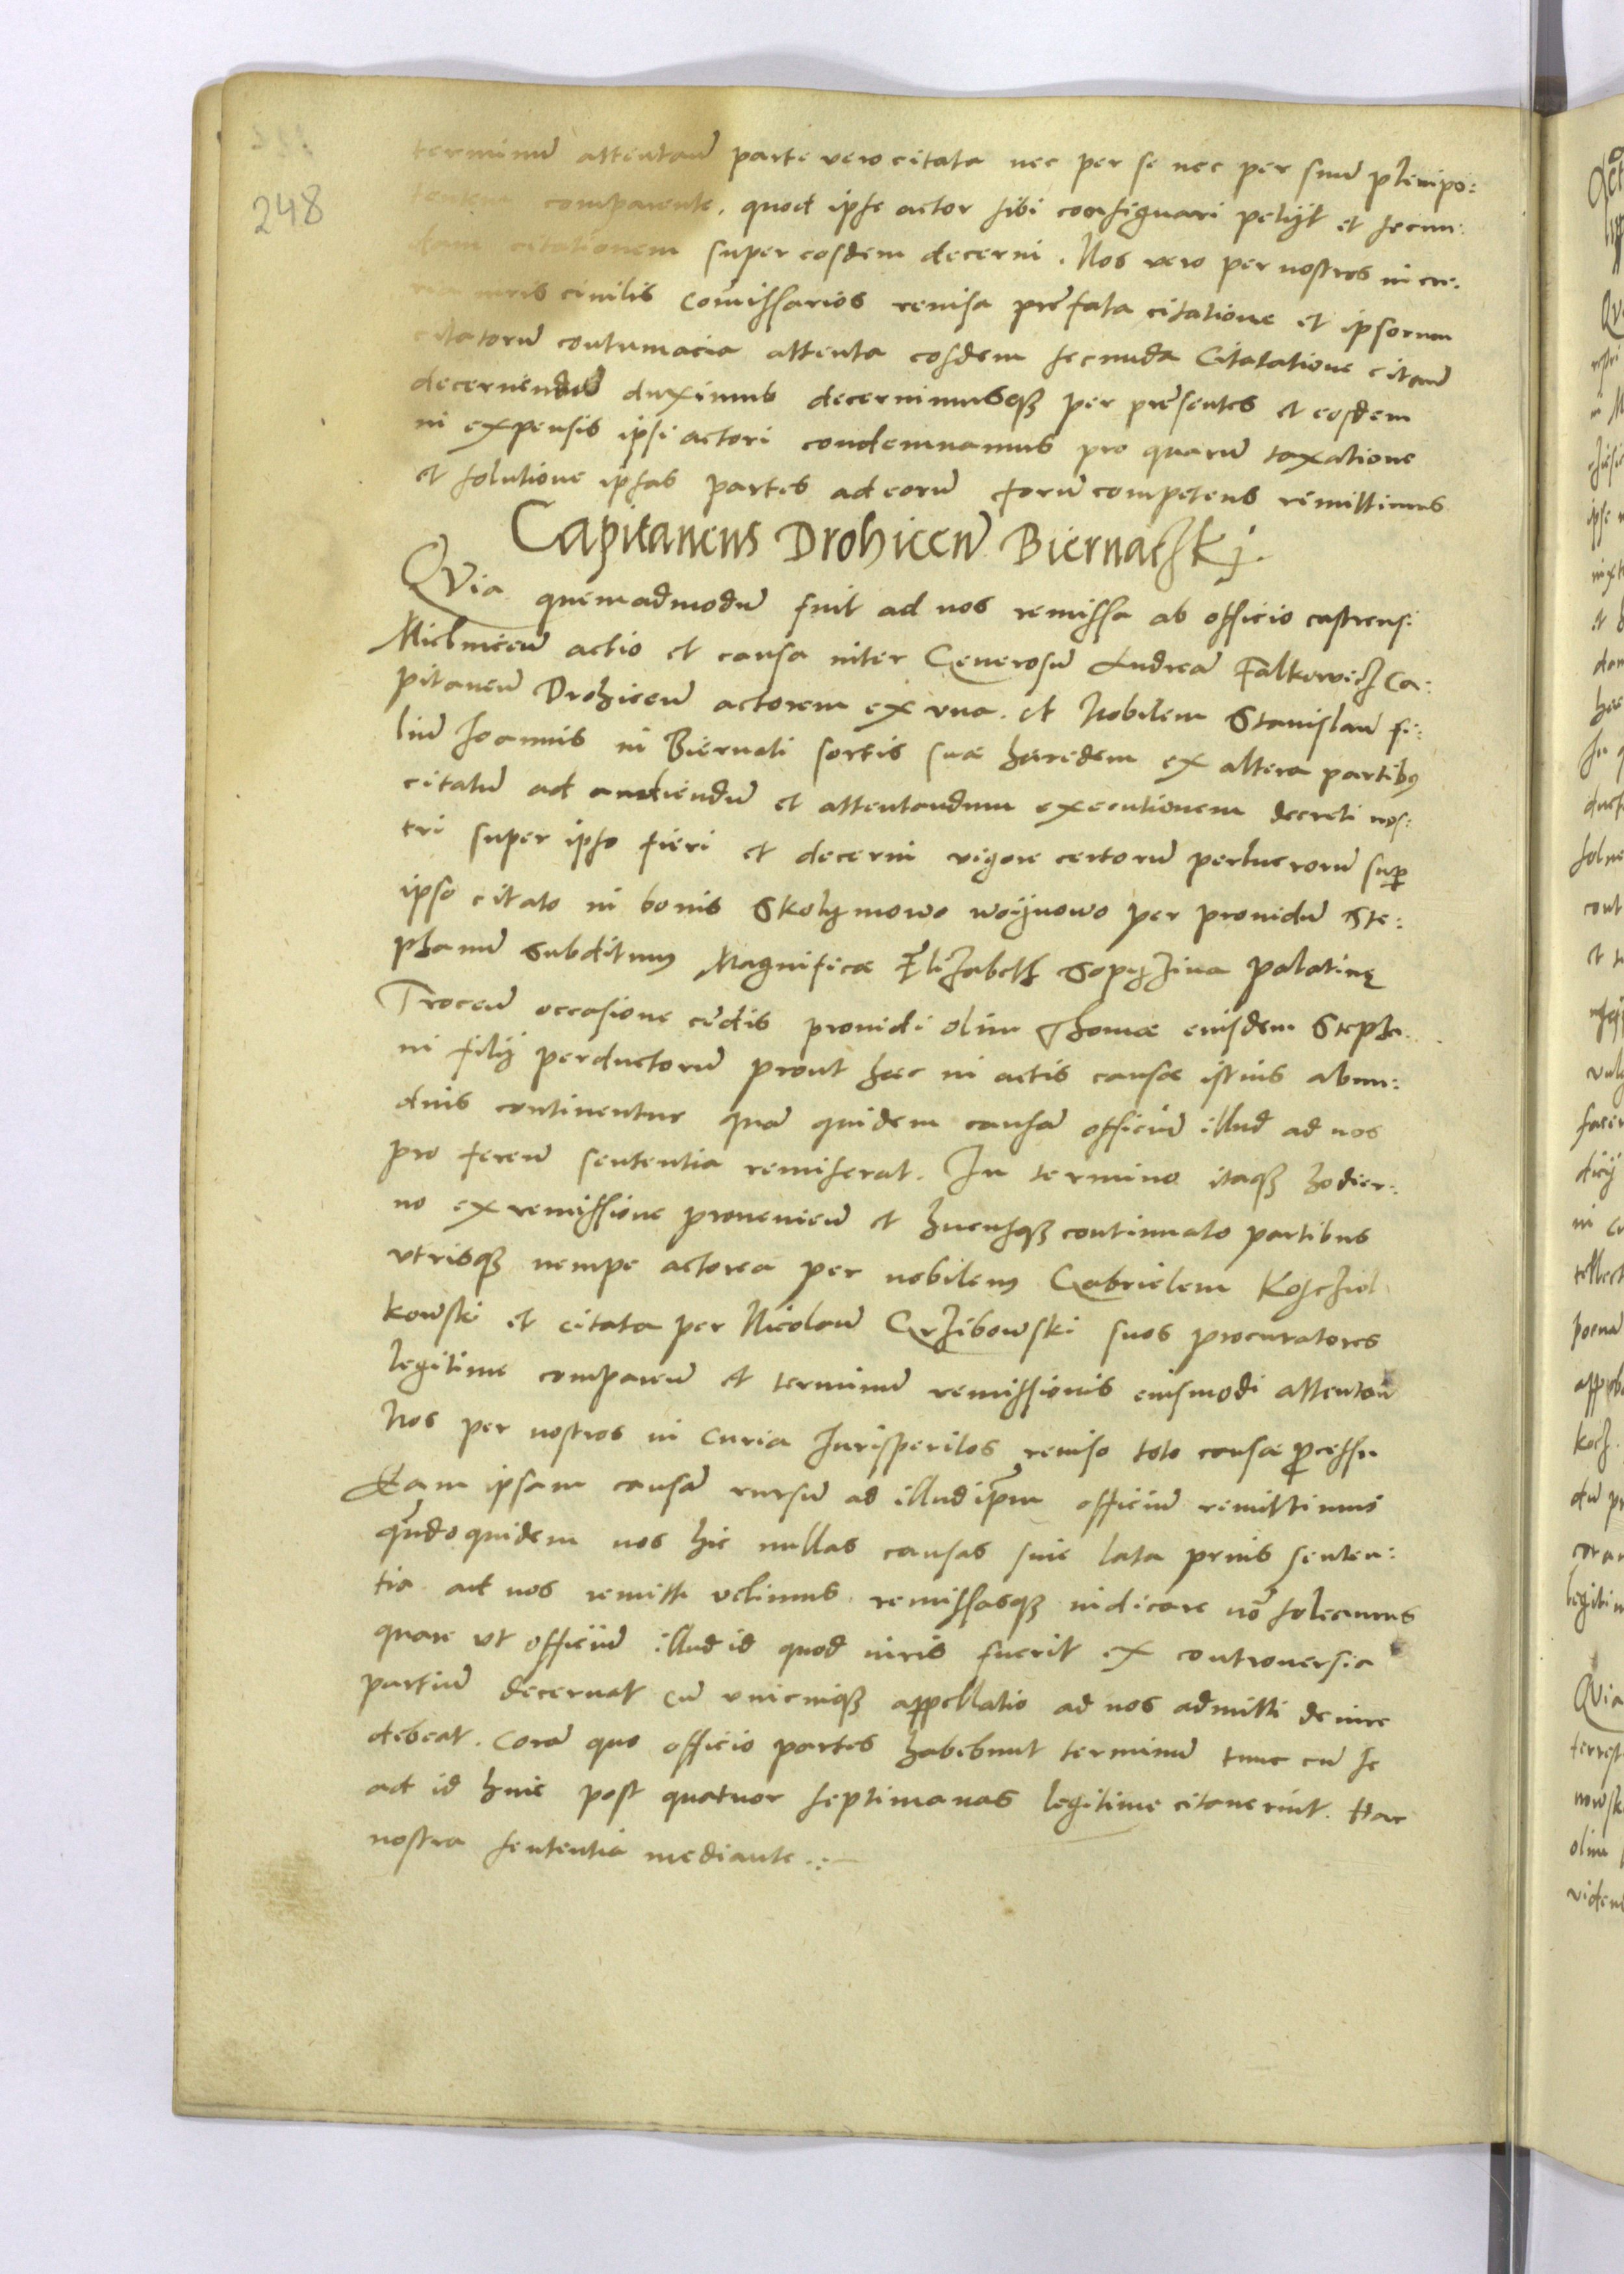 248
terminū attentan̄ parte vero citata nec per se nec per suū plenipo:
tentem comparente. quod ipse actor sibi consignari petijt et secun:
dam citationem super eosdem decerni. Nos vero per nostros in cu:
ria iuris ciuilis com̄issarios reuisa prefata citatione et ipsorum
citatorū contumacia attenta eosdem secunda Citatatione citan̄
decernendū duximus decernimusq3 per presentes et eosdem
in expensis ipsi actori condemnamus pro quarū taxatione
et solutione ipsas partes ad eorū forū competens remittimus
Capitaneus Drohicen̄ Biernaczkj.
QVia quemadmodū fuit ad nos remissa ab officio castrens:
Mielnicen̄ actio et causa inter Generosū Andreā Falkowicz Ca:
pitaneū Drohicen̄ actorem ex vna. et Nobilem Stanislaū fi:
liū Joannis in Biernati sortis suæ hæredem ex altera partibus
citatū ad audiendū et attentandum executionem decreti nos:
tri super ipso fieri et decerni vigore certorū perlucrorū sup
ipso citato in bonis Skolymowo woijnowo per prouidū Ste:
phanū subditum Magnificæ Elizabeth Sopyzina palatinę
Trocen̄ occasione cędis prouidi olim Thomæ eiusdem Stepha
ni filij perductorū prout hæc in actis causæ istius abun:
dius continentur quā quidem causā officiū illud ad nos
pro feren̄ sententia remiserat. In termino itaq3 hodier:
no ex remissione prouenien̄ et hucusq3 continuato partibus
vtrisq3 nempe actorea per nobilem Gabrielem Koschiol
kowski et citata per Nicolaū Grzibowski suos procuratores
legitime comparen̄ et terminū remissionis eiusmodi attentan̄
Nos per nostros in Curia Jurisperitos reuiso toto causæ pcessu
Eam ipsam causā rursū ad illud ipm officiū remittimus
qn̄doquidem nos hic nullas causas sine lata prius senten:
tia ad nos remitti velimus remissasq3 iudicare nō soleamus
quare vt officiū illud id quod iuris fuerit ex controuersia
partiū decernat cū vnicuiq3 appellatio ad nos admitti de iure
debeat. Corā quo officio partes habebunt terminū tunc cū se
ad id huic post quatuor septimanas legitime citauerint. Hac
nostra sententia mediante.:-